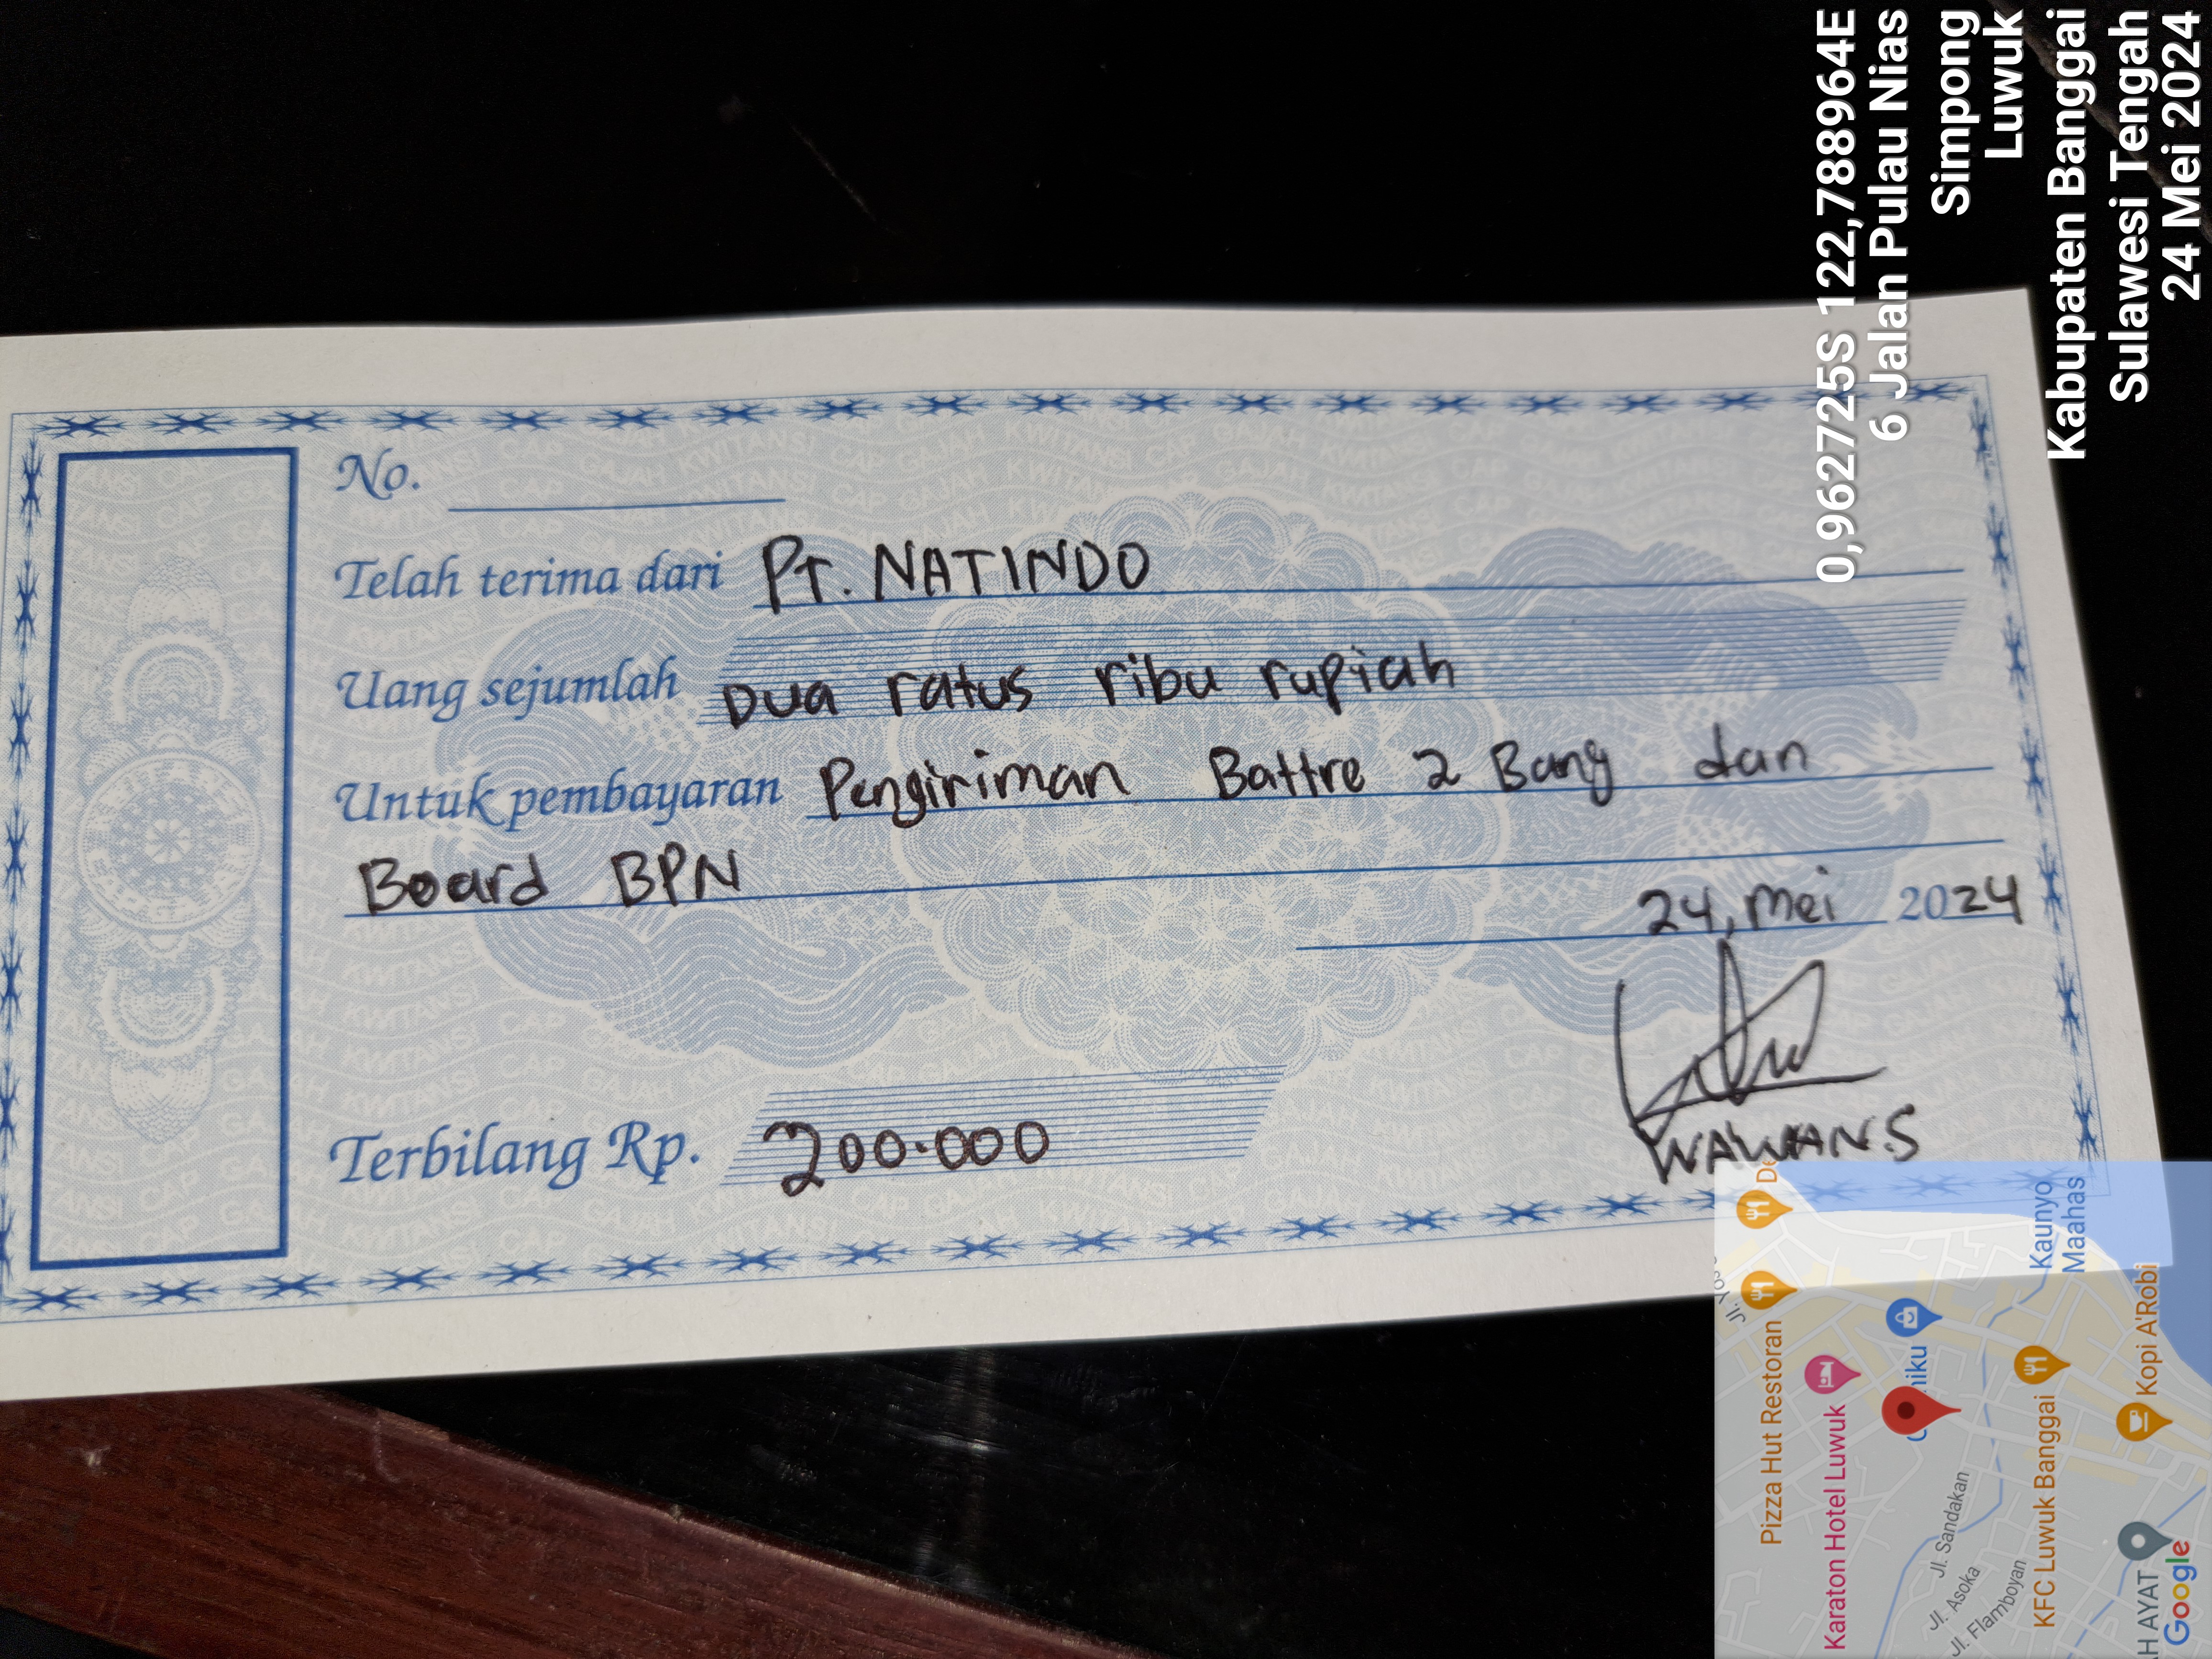 No.
Telah terima dari PT. NATINDO
Uang sejumlah Dua ratus ribu rupiah
Untuk pembayaran Pengiriman Battre 2 Bang dan
Board BPN
24, Mei 2024
Terbilang Rp. 200.000
WAWAN.S
0,9627725S 122,7888964E
6 Jalan Pulau Nias
Simpong
Luwuk
Kabupaten Banggai
Sulawesi Tengah
24 Mei 2024
Pizza Hut Restoran
Karaton Hotel Luwuk
Jl. Sandakan
Jl. Asoka
Jl. Flamboyan
KFC Luwuk Banggai
Kaunyo
Maahas
Kopi A'Robi
AYAT
Google